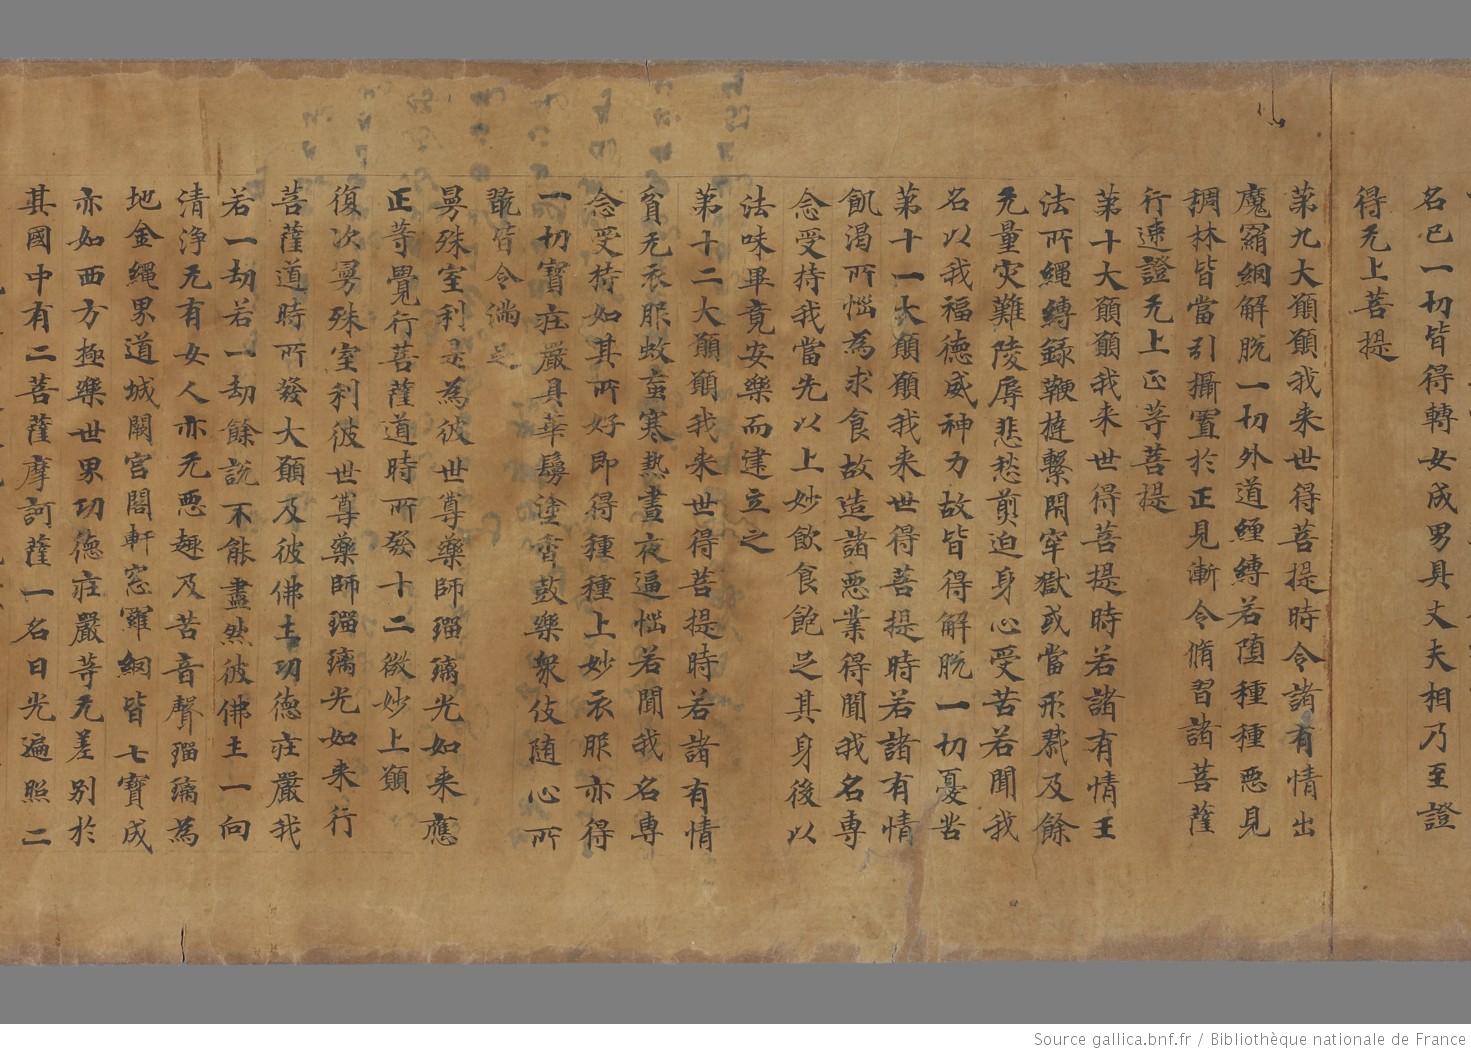 名已一切皆得轉女成男具丈夫相乃至證
得无上菩提
苐九大願願我来世得菩提時令諸有情出
魔羂網解脫一切外道纏縛若墮種種惡見
稠林皆當引攝置於正見漸令脩習諸菩薩
行速證无上正等菩提
苐十大願願我来世得菩提時若諸有情王
法所繩縛録鞭撻繫閇牢獄或當形戮及餘
无量灾難陵辱悲愁煎迫身心受苦若聞我
名以我福德威神力故皆得解脫一切憂苦
苐十一大願願我来世得菩提時若諸有情
飢渴所惱為求食故造諸惡業得聞我名專
念受持我當先以上妙飲食飽足其身後以
法味畢竟安樂而建立之
苐十二大願願我来世得菩提時若諸有情
貧无衣服蚊䖟寒熱晝夜逼惱若聞我名專
念受持如其所好即得種種上妙衣服亦得
一切寶莊嚴具華鬘塗香鼓樂衆伎随心所
翫皆令滿足
曼殊室利是為彼世尊藥師瑠璃光如来應
正等覺行菩薩道時所發十二微妙上願
復次曼殊室利彼世尊藥師瑠璃光如来行
菩薩道時所發大願及彼佛土功德莊嚴我
若一劫若一劫餘說不能盡然彼佛土一向
清淨无有女人亦无惡趣及苦音聲瑠璃為
地金繩界道城闕宮閣軒窓羅網皆七寶成
亦如西方極樂世界功德莊嚴等无差別於
其國中有二菩薩摩訶薩一名日光遍照二
Source gallica.bnf.fr / Bibliothèque nationale de France